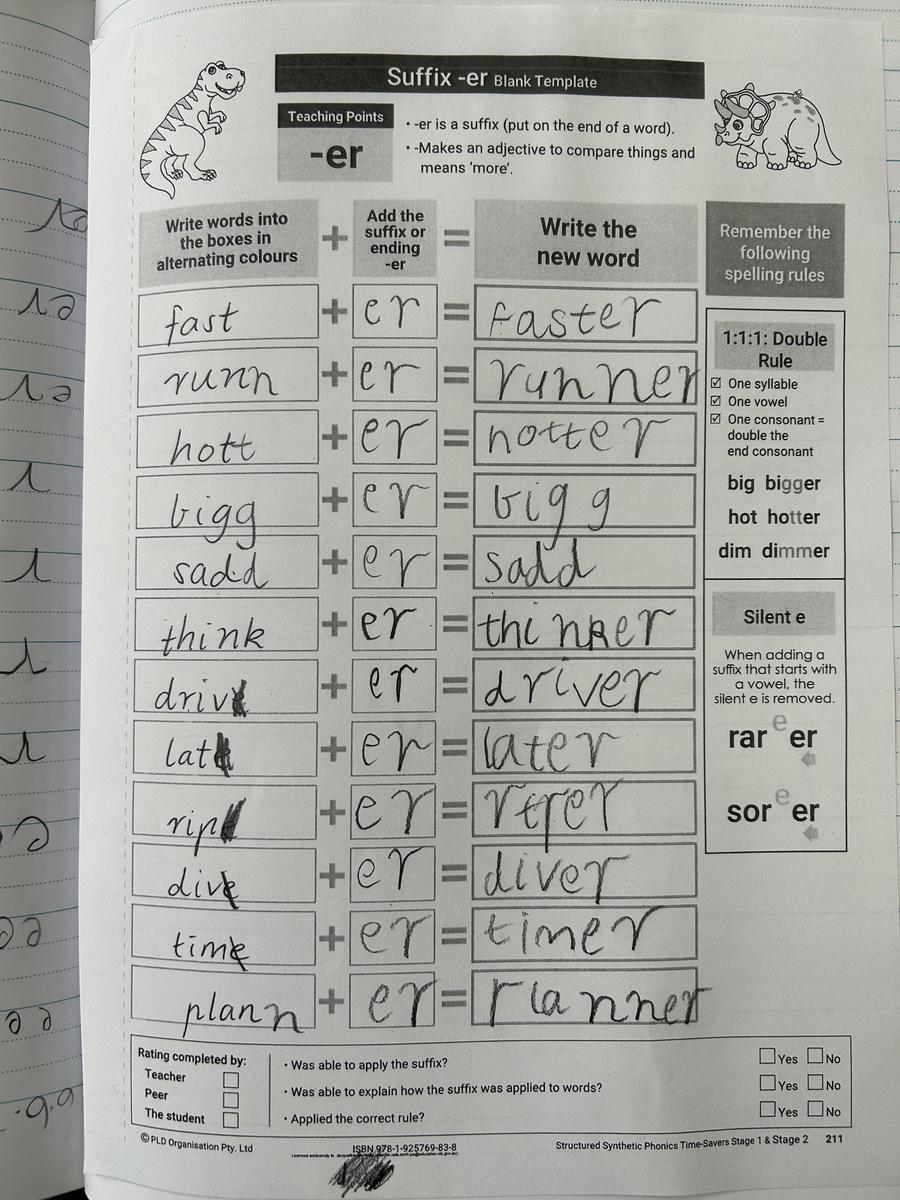 Suffix -er Blank Template
Teaching Points
-er
• -er is a suffix (put on the end of a word).
• -Makes an adjective to compare things and
means 'more'.
Write words into
the boxes in
alternating colours
+
Add the
suffix or
ending
-er
=
Write the
new word
Remember the
following
spelling rules
fast + er = faster
runn + er = runner
hott + er = hotter
bigg + er = bigg
sadd + er = sadd
think + er = thinker
driv + er = driver
lat + er = later
rip + er = riper
dive + er = diver
time + er = timer
plann + er = planner
1:1:1: Double
Rule
☑ One syllable
☑ One vowel
☑ One consonant =
double the
end consonant
big bigger
hot hotter
dim dimmer
Silent e
When adding a
suffix that starts with
a vowel, the
silent e is removed.
rar e er
sor e er
Rating completed by:
Teacher
Peer
The student
• Was able to apply the suffix? Yes No
• Was able to explain how the suffix was applied to words? Yes No
• Applied the correct rule? Yes No
© PLD Organisation Pty. Ltd
ISBN 978-1-925769-83-8
Structured Synthetic Phonics Time-Savers Stage 1 & Stage 2 211